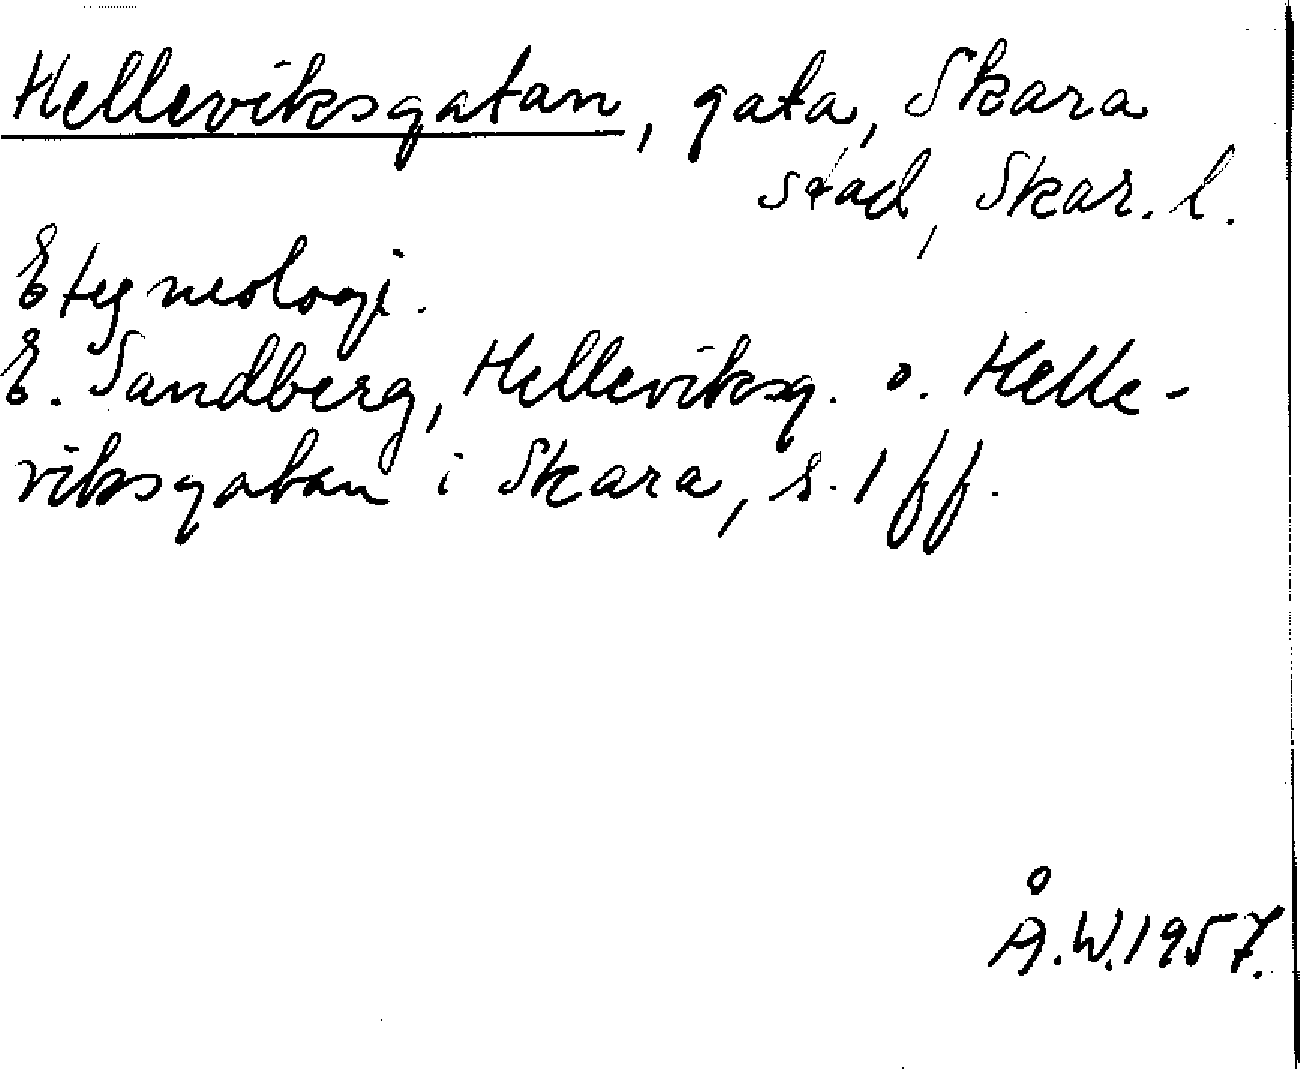 Helleviksgatan, gata, Skara
stad, Skar. l.
Etymologi.
E. Sandberg, Helleviksg. o. Helle-
viksgatan i Skara, s. 1 ff.
Å.W. 1957.